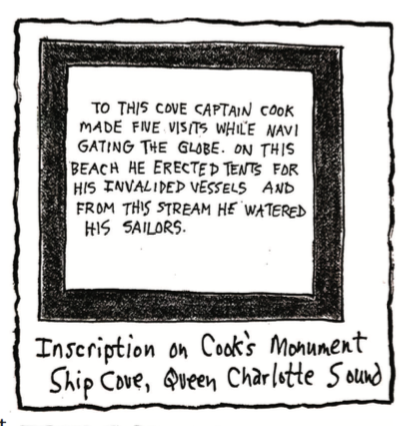 TO THIS COVE CAPTAIN COOK
MADE FIVE VISITS WHILE NAVI
GATING THE GLOBE. ON THIS
BEACH HE ERECTED TENTS FOR
HIS INVALIDED VESSELS AND
FROM THIS STREAM HE WATERED
HIS SAILORS.
Inscription on Cook's Monument
Ship Cove, Queen Charlotte Sound